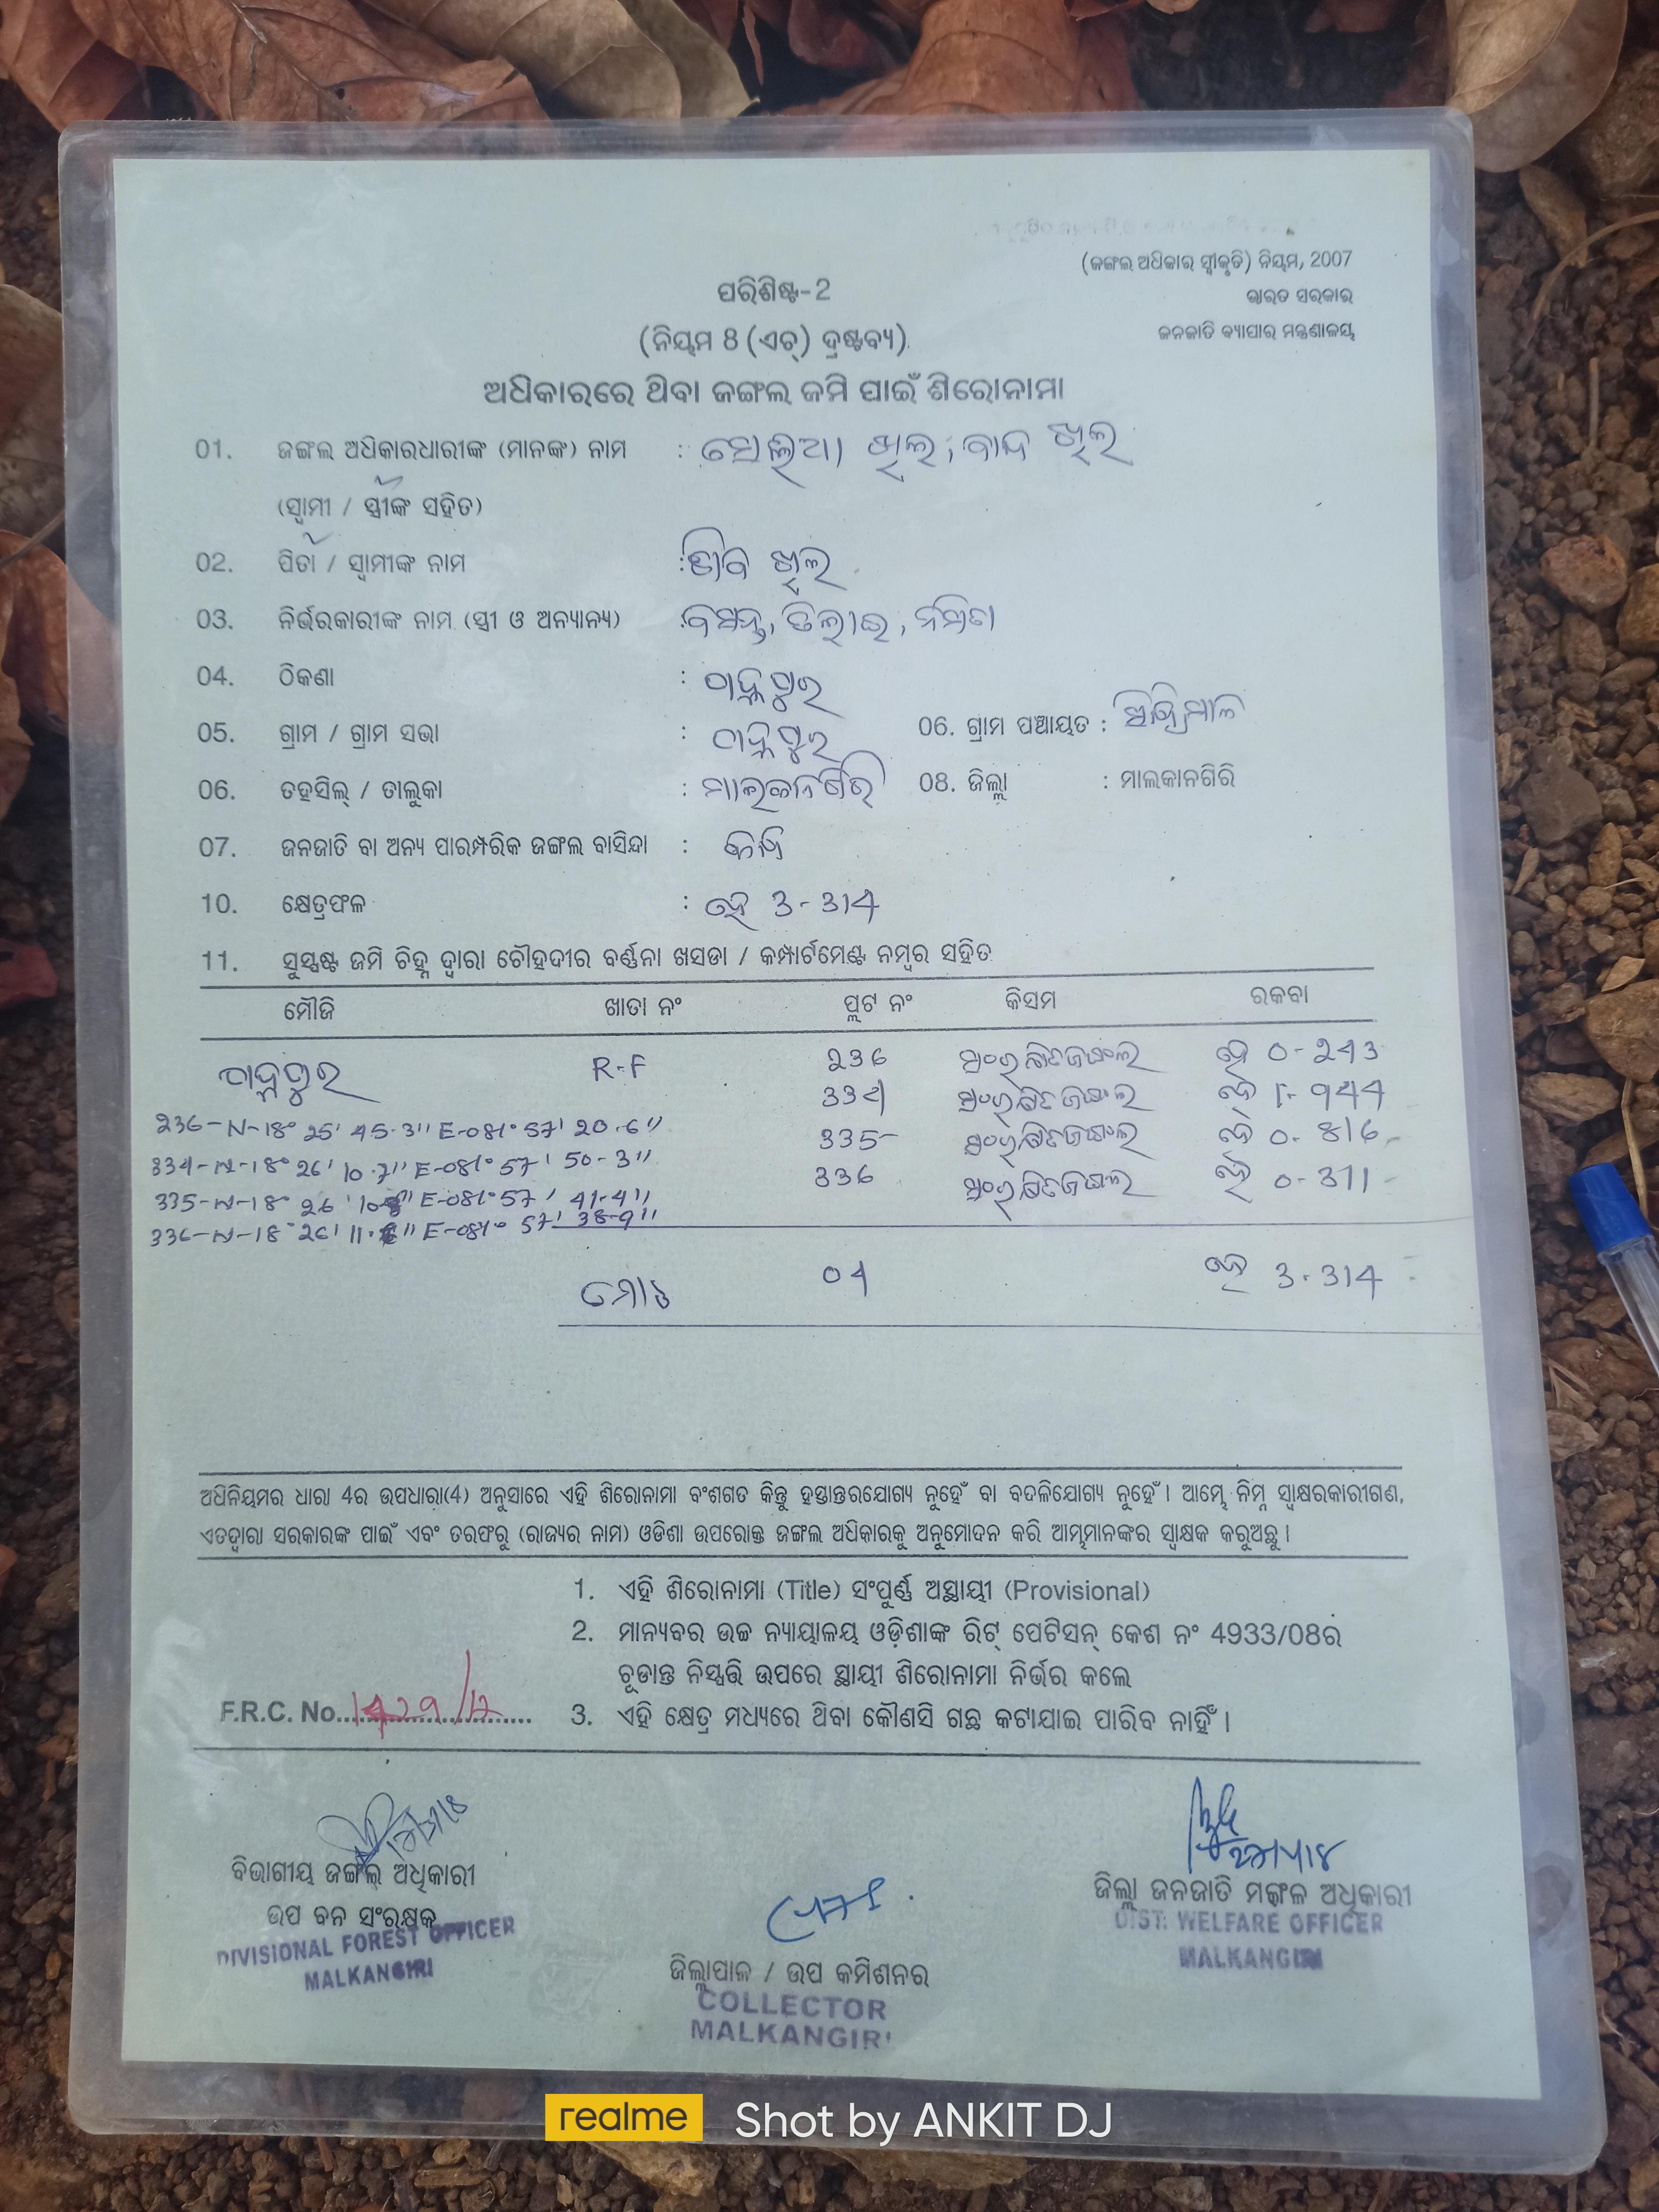 (ଜଙ୍ଗଲ ଅଧିକାର ସ୍ୱୀକୃତି) ନିୟମ, 2007
ଭାରତ ସରକାର
ଜନଜାତି ବ୍ୟାପାର ମନ୍ତ୍ରଣାଳୟ
ପରିଶିଷ୍ଟ-2
(ନିୟମ 8 (ଏଚ୍) ଦ୍ରଷ୍ଟବ୍ୟ)
ଅଧିକାରରେ ଥିବା ଜଙ୍ଗଲ ଜମି ପାଇଁ ଶିରୋନାମା
01. ଜଙ୍ଗଲ ଅଧିକାରଧାରୀଙ୍କ (ମାନଙ୍କ) ନାମ : ଖିଲ,
(ସ୍ୱାମୀ / ସ୍ତ୍ରୀଙ୍କ ସହିତ)
02. ପିତା / ସ୍ୱାମୀଙ୍କ ନାମ : ଖିଲ
03. ନିର୍ଭରକାରୀଙ୍କ ନାମ (ସ୍ତ୍ରୀ ଓ ଅନ୍ୟାନ୍ୟ) :
04. ଠିକଣା :
05. ଗ୍ରାମ / ଗ୍ରାମ ସଭା : 06. ଗ୍ରାମ ପଞ୍ଚାୟତ :
06. ତହସିଲ୍ / ତାଲୁକା : ମାଲକାନଗିରି 08. ଜିଲ୍ଲା : ମାଲକାନଗିରି
07. ଜନଜାତି ବା ଅନ୍ୟ ପାରମ୍ପରିକ ଜଙ୍ଗଲ ବାସିନ୍ଦା :
10. କ୍ଷେତ୍ରଫଳ : ହେ 3-314
11. ସୁସ୍ପଷ୍ଟ ଜମି ଚିହ୍ନ ଦ୍ୱାରା ଚୌହଦୀର ବର୍ଣ୍ଣନା ଖସଡା / କମ୍ପାର୍ଟମେଣ୍ଟ ନମ୍ବର ସହିତ
ମୌଜି ଖାତା ନଂ ପ୍ଲଟ ନଂ କିସମ ରକବା
R-F 236 ସଂରକ୍ଷିତ ଜଙ୍ଗଲ ହେ 0-243
334 ସଂରକ୍ଷିତ ଜଙ୍ଗଲ ହେ 1-944
236-N-18° 25' 45.3" E-081° 57' 20.6"
335 ସଂରକ୍ଷିତ ଜଙ୍ଗଲ ହେ 0-816
334-N-18° 26' 10.7" E-081° 57' 50-3"
336 ସଂରକ୍ଷିତ ଜଙ୍ଗଲ ହେ 0-311
335-N-18° 26' E-081° 57' 41-4"
336-N-18° 26' E-081° 57' 38-9"
ମୋଟ 04 ହେ 3-314
ଅଧିନିୟମର ଧାରା 4ର ଉପଧାରା(4) ଅନୁସାରେ ଏହି ଶିରୋନାମା ବଂଶଗତ କିନ୍ତୁ ହସ୍ତାନ୍ତରଯୋଗ୍ୟ ନୁହେଁ ବା ବଦଳିଯୋଗ୍ୟ ନୁହେଁ । ଆମ୍ଭେ ନିମ୍ନ ସ୍ୱାକ୍ଷରକାରୀଗଣ,
ଏତଦ୍ୱାରା ସରକାରଙ୍କ ପାଇଁ ଏବଂ ତରଫରୁ (ରାଜ୍ୟର ନାମ) ଓଡିଶା ଉପରୋକ୍ତ ଜଙ୍ଗଲ ଅଧିକାରକୁ ଅନୁମୋଦନ କରି ଆମ୍ଭମାନଙ୍କର ସ୍ୱାକ୍ଷକ କରୁଅଛୁ ।
1. ଏହି ଶିରୋନାମା (Title) ସଂପୂର୍ଣ୍ଣ ଅସ୍ଥାୟୀ (Provisional)
2. ମାନ୍ୟବର ଉଚ୍ଚ ନ୍ୟାୟାଳୟ ଓଡ଼ିଶାଙ୍କ ରିଟ୍ ପେଟିସନ୍ କେଶ ନଂ 4933/08ର
ଚୂଡାନ୍ତ ନିସ୍ପତ୍ତି ଉପରେ ସ୍ଥାୟୀ ଶିରୋନାମା ନିର୍ଭର କଲେ
F.R.C. No.
3. ଏହି କ୍ଷେତ୍ର ମଧ୍ୟରେ ଥିବା କୌଣସି ଗଛ କଟାଯାଇ ପାରିବ ନାହିଁ ।
ବିଭାଗୀୟ ଜଙ୍ଗଲ ଅଧିକାରୀ
ଉପ ବନ ସଂରକ୍ଷକ
DIVISIONAL FOREST OFFICER
MALKANGIRI
ଜିଲ୍ଲାପାଳ / ଉପ କମିଶନର
COLLECTOR
MALKANGIRI
ଜିଲ୍ଲା ଜନଜାତି ମଙ୍ଗଳ ଅଧିକାରୀ
DIST. WELFARE OFFICER
MALKANGIRI
realme Shot by ANKIT DJ